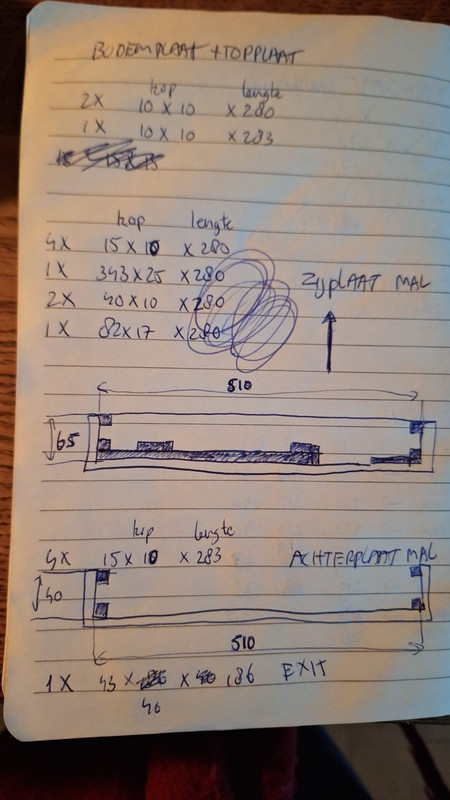 BODEMPLAAT + TOPPLAAT
kop lengte
2X 10 X 10 X 280
1X 10 X 10 X 283
kop lengte
4X 15 X 10 X 280
1X 343 X 25 X 280
2X 40 X 10 X 280
1X 82 X 17 X 280
ZYPLAAT MAL
510
65
kop lengte
4X 15 X 10 X 283 ACHTERPLAAT MAL
40
510
1X 43 X X 186 EXIT
40